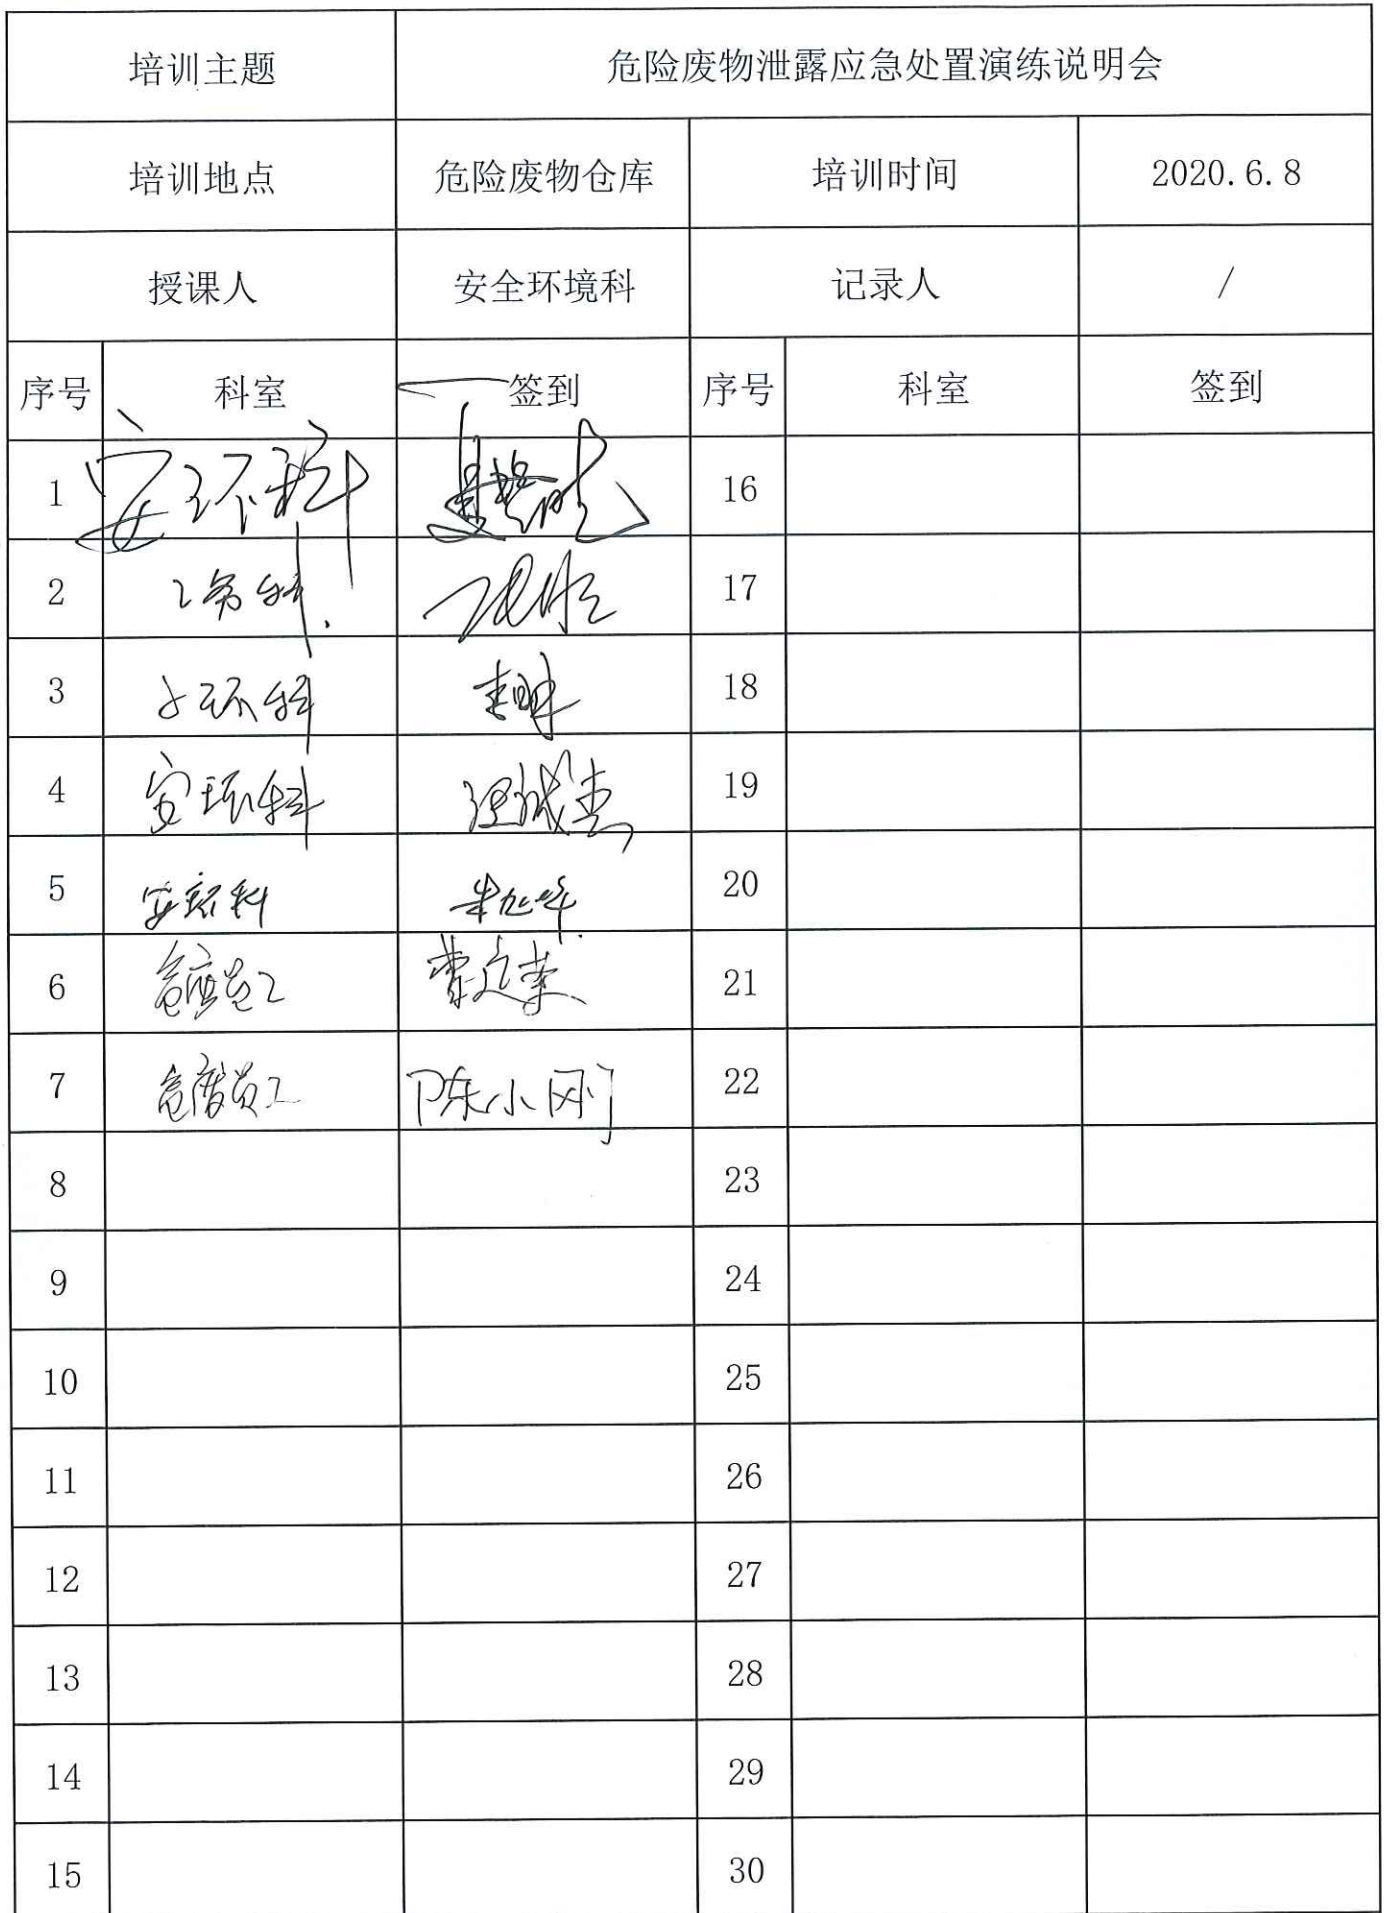 培训主题 危险废物泄露应急处置演练说明会
培训地点 危险废物仓库 培训时间 2020.6.8
授课人 安全环境科 记录人 /
序号 科室 签到 序号 科室 签到
1 安环科 16
2 17
3 安环科 18
4 安环科 汪诚杰 19
5 安环科 朱旭华 20
6 危废员工 曹定荣 21
7 危废员工 陈小刚 22
8 23
9 24
10 25
11 26
12 27
13 28
14 29
15 30